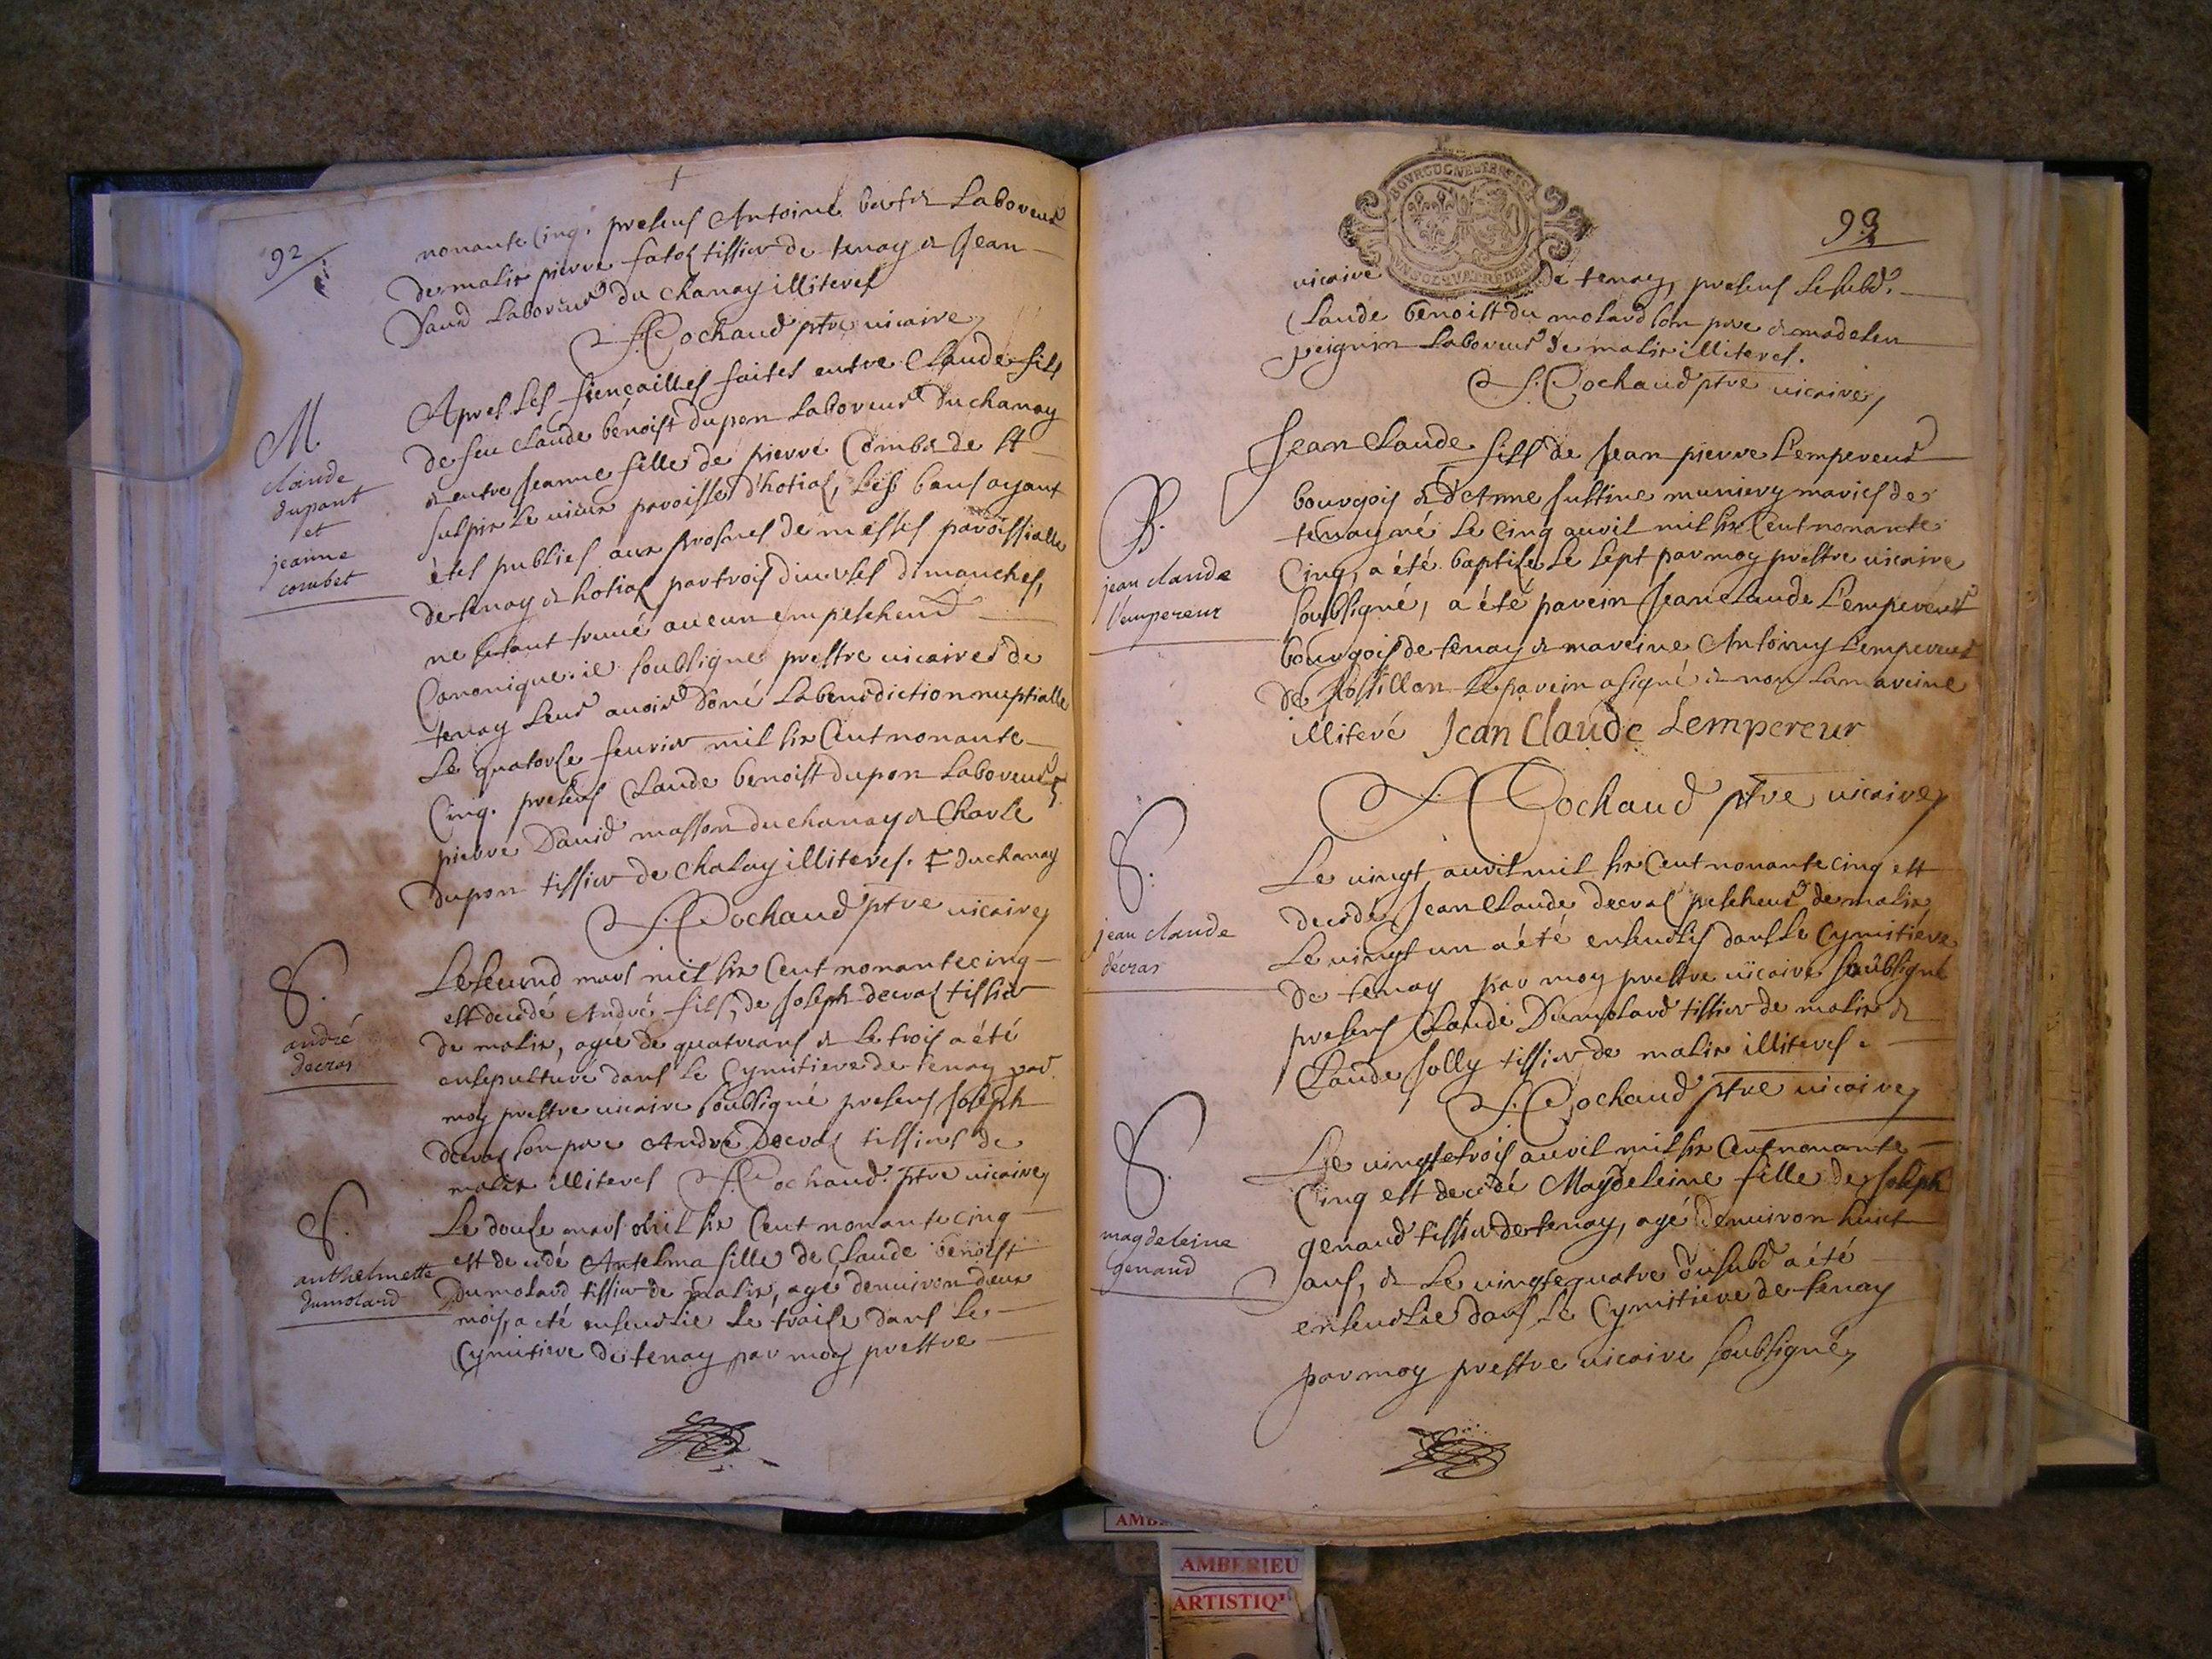 92
nonante cinq. presens Antoine Laboureur
de malix pierre tissier de tenay & Jean
Laboureur du chanay illiteres
Cochaud ptre vicaire
M.
claude
dupont
et
jeanne
combet
Apres Les fiençailles faites entre Claude fils
de feu claude benoist dupon Laboureur du chanay
& entre Jeanne fille de pierre Combet de St
sulpix Le vieux paroisse d'hotiaz, bans ayant
étés publies aux prosnes de messes paroissialle
de tenay & hotiaz par trois diverses dimanches,
ne s'estant trouvé aucun empeschent
Canonique. ie soubsigne prestre vicaire de
tenay Leur avoir doné La benediction nuptialle
Le quatorse fevrier mil six Cent nonante
Cinq. presens Claude benoist dupon Laboureur
pierre David masson du chanay & Charle
dupon tissier de Chalay illiteres. du chanay
Cochaud ptre vicaire
S.
andré
decras
Le second mars mil six Cent nonante cinq
est decedé André fils, de Joseph decras tissier
de malix, agé de quatre ans & Le trois a été
ensepulturé dans Le Cymitiere de tenay par
moy prestre vicaire soubsigné presens Joseph
decras son pere André Decras tissiers de
malix illiteres Cochaud ptre vicaire
S.
anthelmette
dumolard
Le douse mars mil six Cent nonante cinq
est decedé Antelma fille de Claude benoist
dumolard tissier de malix, agé denviron deux
mois, a été ensevelie Le traise dans Le
Cymitiere de tenay par moy prestre
93
BOVRGOGNE ET BRESSE
vicaire de tenay, presens Le subd.
Claude benoist du molard son pere & madelen
peignin Laboureur de malix illiteres.
Cochaud ptre vicaire
B.
jean claude
l'empereur
Jean Claude fils de Jean pierre L'empereur
bourgois & d'Anne Justine muniery maries de
tenay né Le cinq avril mil six Cent nonante
Cinq, a été baptise Le sept par moy prestre vicaire
soubsigné, a été parein Jean Claude L'empereur
bourgois de tenay & mareine Antoiny L'empereur
de Rossillon Le parein a signé & non La mareine
illiteré Jean Claude Lempereur
Cochaud ptre vicaire
S.
jean claude
décras
Le vingt avril mil six Cent nonante cinq est
decedé Jean Claude decras pescheur de malix
Le vingt un a été ensevelis dans Le Cymitiere
de tenay par moy prestre vicaire soubsigné
presens Claude Dumolard tissier de malix &
Claude Jolly tissier de malix illiteres.
Cochaud ptre vicaire
S.
magdeleine
genaud
Le vingtetrois avril mil six Cent nonante
Cinq est decedé Magdeleine fille de Joseph
genaud tissier de tenay, agé denviron huict
ans, & Le vingtequatre du subd a été
ensevelie dans Le Cymitiere de tenay
par moy prestre vicaire soubsigné,
AMBERIEU
ARTISTIQ